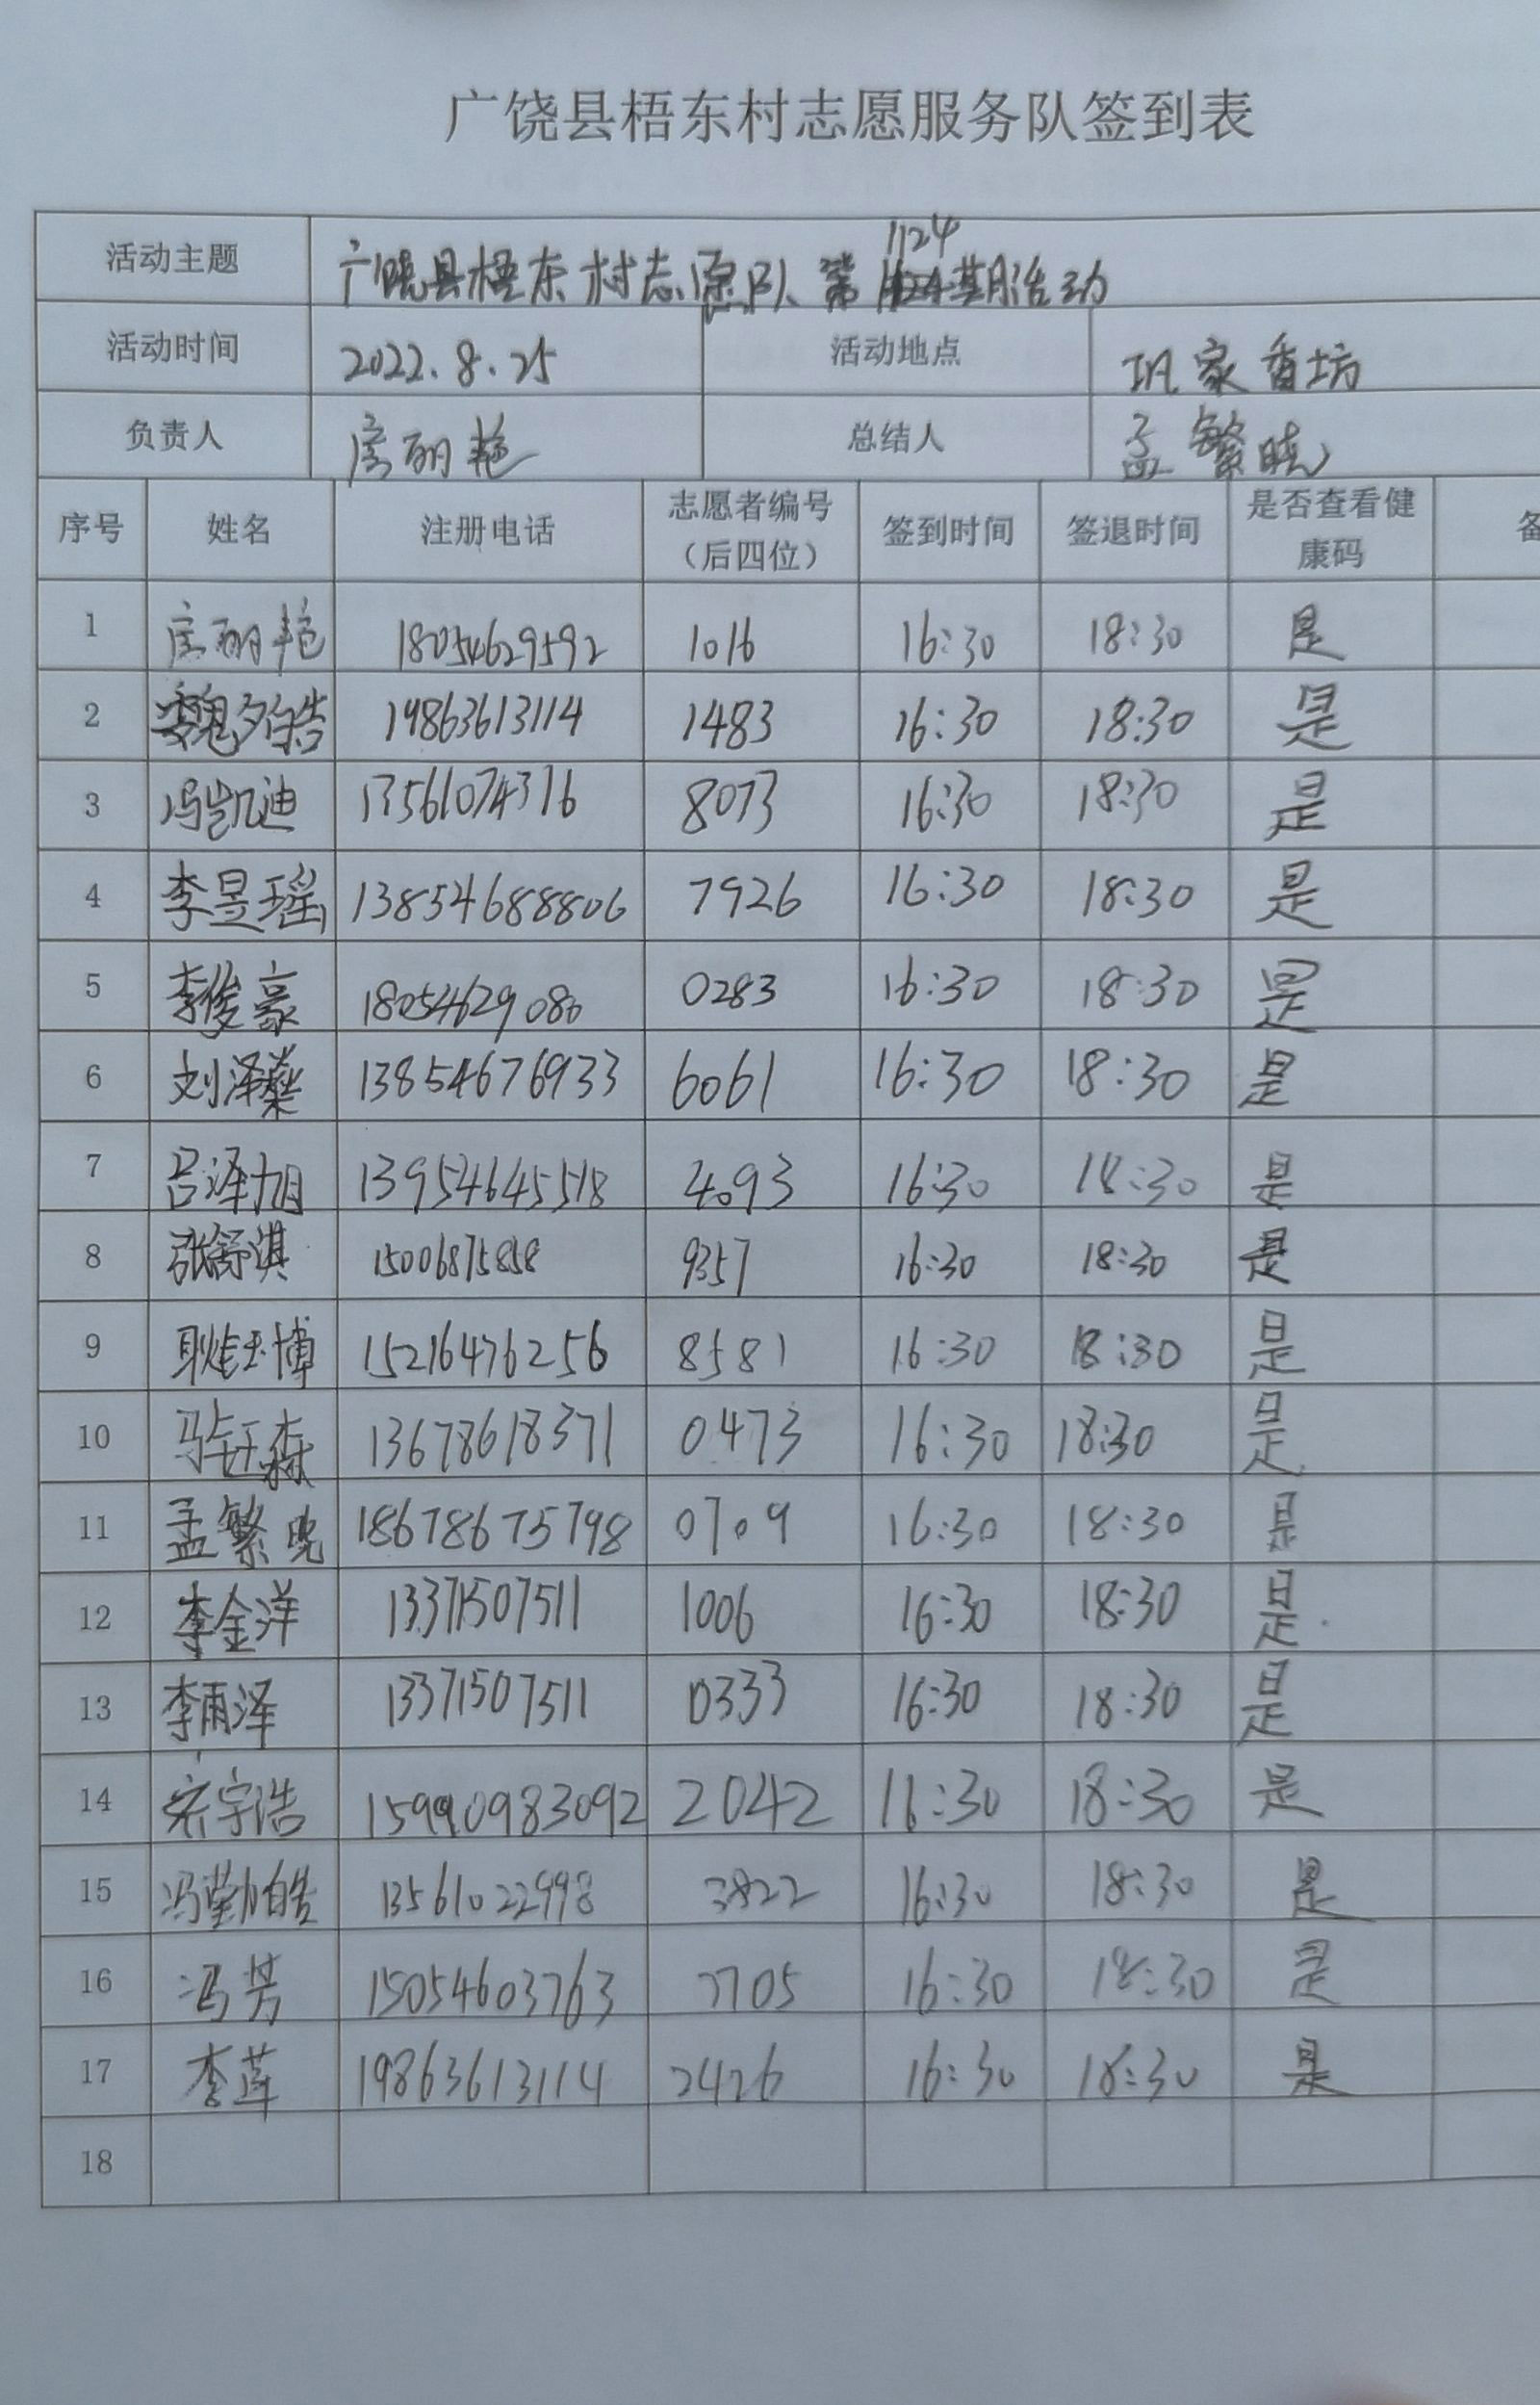 广饶县梧东村志愿服务队签到表
1124
活动主题 广饶县梧东村志愿队第1124期活动
活动时间 2022.8.25 活动地点 巩家香坊
负责人 房丽艳 总结人 孟繁晓
序号 姓名 注册电话 志愿者编号（后四位） 签到时间 签退时间 是否查看健康码 备
1 房丽艳 18054629592 1016 16:30 18:30 是
2 魏夕皓 19863613114 1483 16:30 18:30 是
3 冯凯迪 13561074316 8073 16:30 18:30 是
4 李昱瑶 13854688806 7926 16:30 18:30 是
5 李俊豪 18054629080 0283 16:30 18:30 是
6 刘泽燊 13854676933 6061 16:30 18:30 是
7 吕泽旭 13954645518 4093 16:30 18:30 是
8 张舒淇 15006875858 9357 16:30 18:30 是
9 耿钰博 15216476256 8581 16:30 18:30 是
10 马钰森 13678618371 0473 16:30 18:30 是
11 孟繁晓 18678675798 0709 16:30 18:30 是
12 李金洋 13371507511 1006 16:30 18:30 是
13 李雨泽 13371507511 0333 16:30 18:30 是
14 宋宇浩 159990983092 2042 16:30 18:30 是
15 冯勤皓 13561022998 3822 16:30 18:30 是
16 冯芳 15054603763 7705 16:30 18:30 是
17 李莲 19863613114 2426 16:30 18:30 是
18